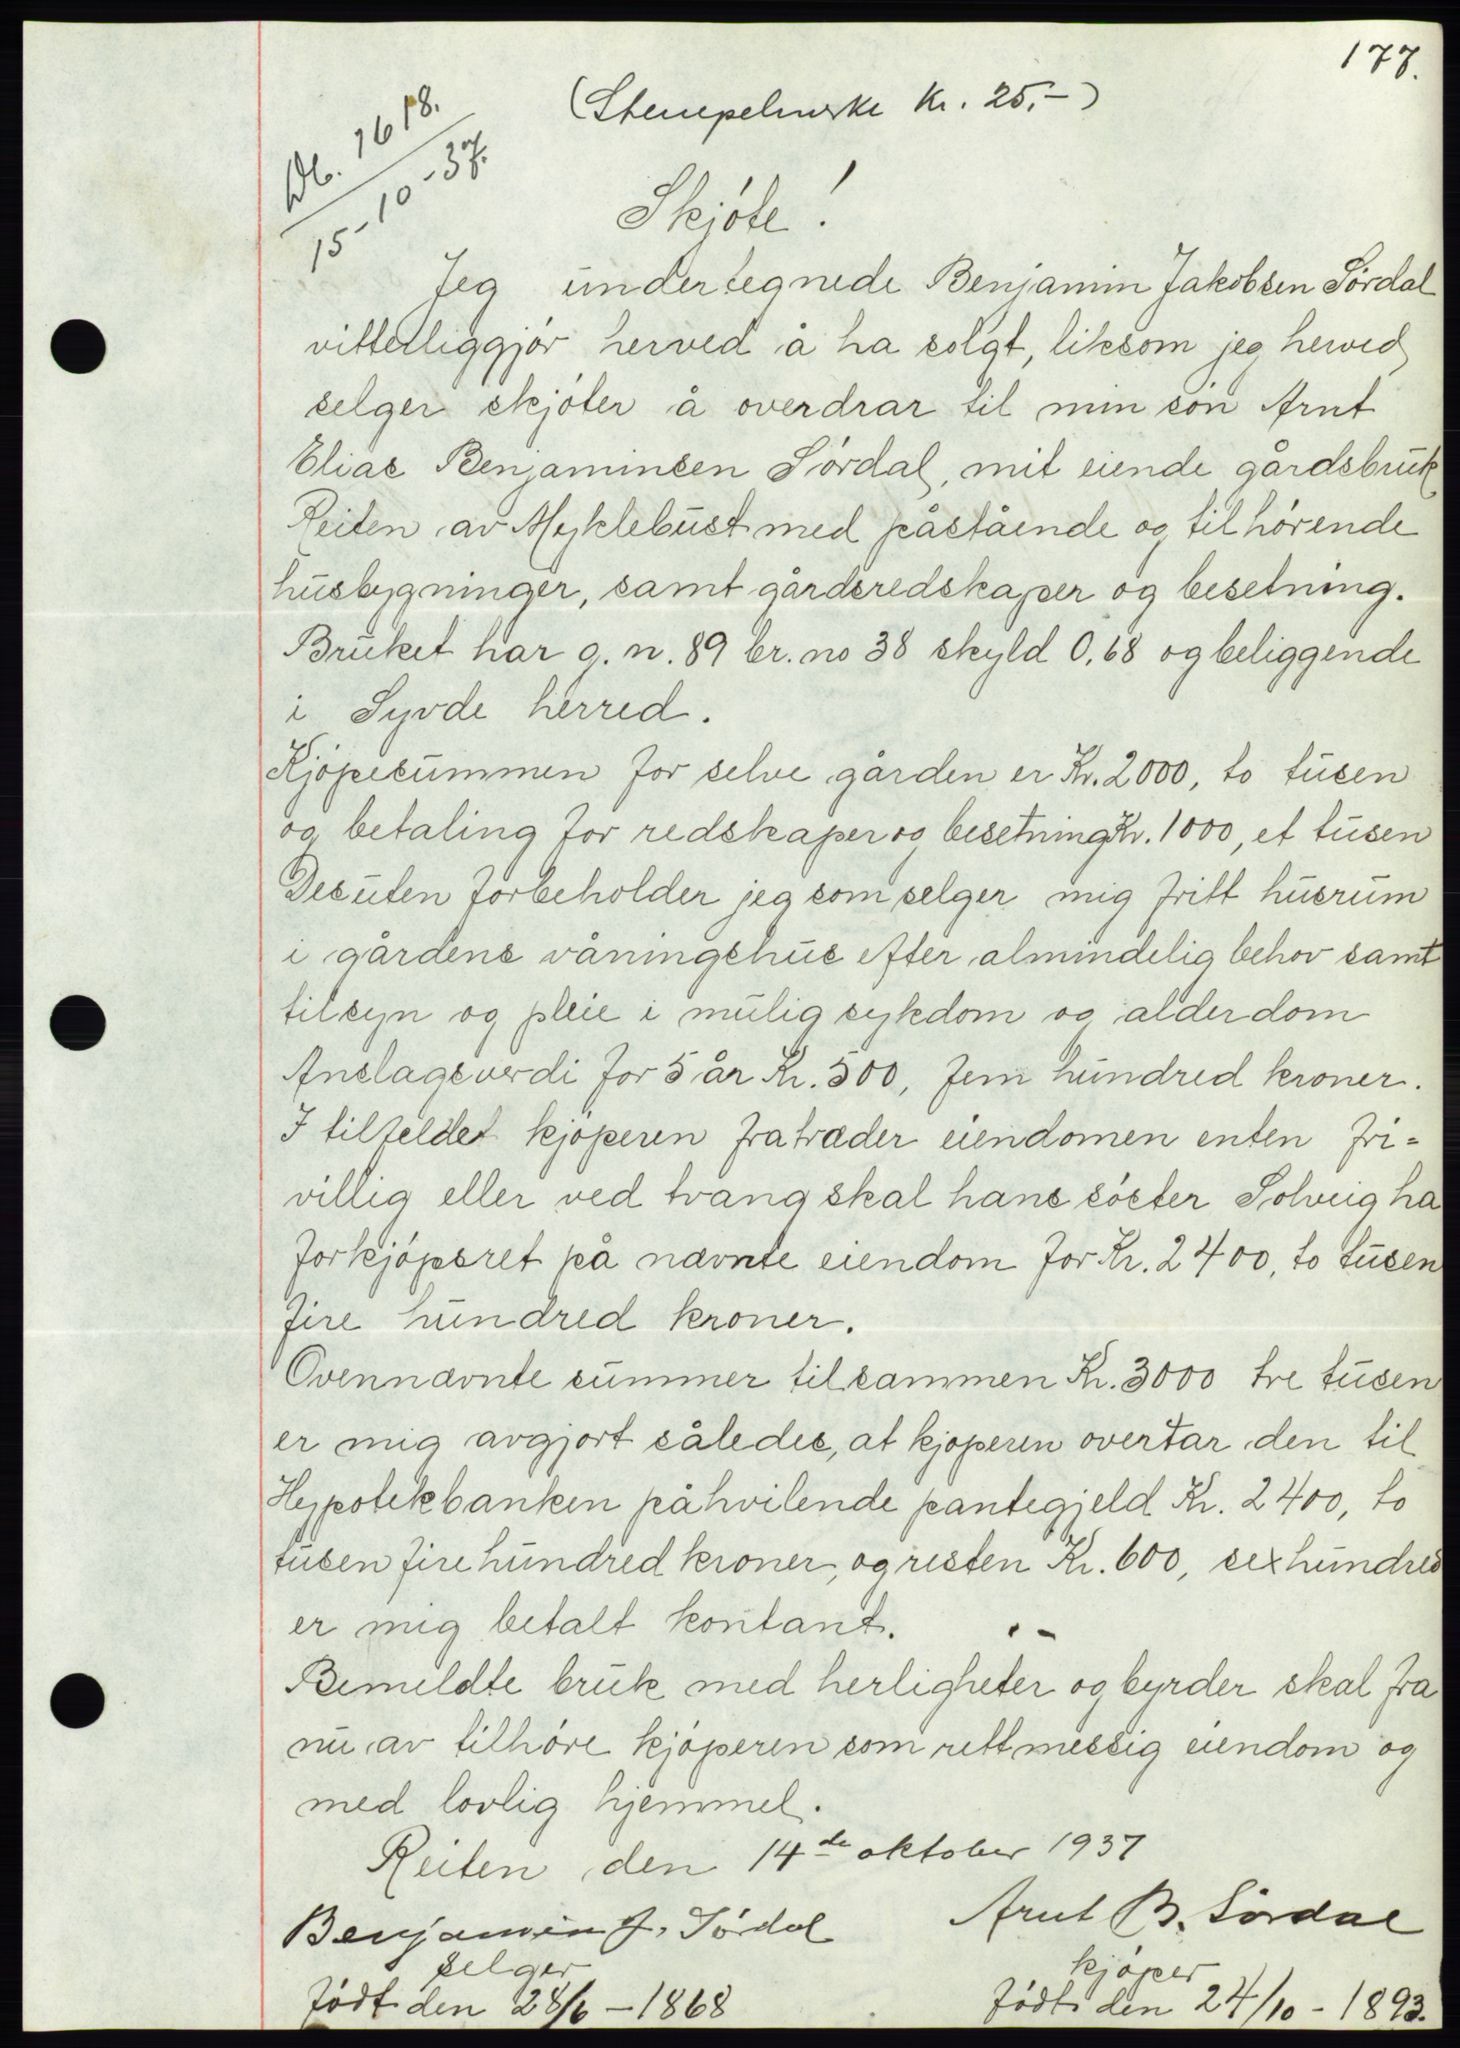 177.
(Stempelmerke Kr. 25,-)
Db. 1618.
15-10-37.
Skjóte!
Jeg undertegnede Benjamin Jakobsen Sórdal
vitterliggjór herved å ha solgt, liksom jeg herved
selger skjóter å overdrar til min són Arnt
Elias Benjaminsen Sórdal, mit eiende gårdsbruk
Reiten av Myklebust med påstående og tilhórende
husbygninger, samt gårdsredskaper og besetning.
Bruket har g.n. 89 br.no 38 skyld 0,68 og beliggende
i Syvde herred.
Kjópesummen for selve gården er Kr. 2000, to tusen
og betaling for redskaper og besetning Kr. 1000, et tusen
Desuten forbeholder jeg som selger mig fritt husrum
i gårdens våningshus efter almindelig behov samt
tilsyn og pleie i mulig sykdom og alderdom
Anslagsverdi for 5 år Kr. 500, fem hundred kroner.
I tilfeldet kjóperen fratræder eiendomen enten fri=
villig eller ved tvang skal hans sóster Solveig ha
forkjópsret på nævnte eiendom for Kr. 2400, to tusen
fire hundred kroner.
Ovennævnte summer tilsammen Kr. 3000 tre tusen
er mig avgjort således, at kjoperen overtar den til
Hypotekbanken påhvilende pantegjeld Kr. 2400, to
tusen fire hundred kroner, og resten Kr. 600, sex hundred
er mig betalt kontant.
Bemeldte bruk med herligheter og byrder skal fra
nu av tilhóre kjóperen som rettmessig eiendom og
med lovlig hjemmel.
Reiten den 14de oktober 1937
Benjamin J. Sórdal Arnt B. Sórdal
selger kjóper
fódt den 28/6 - 1868 fódt den 24/10 - 1893.